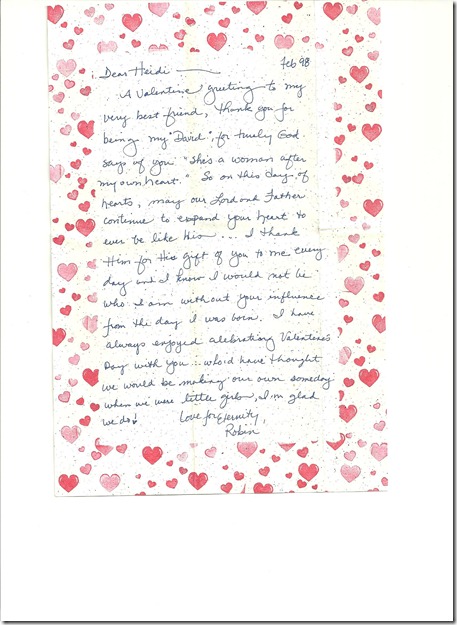 Feb 98
Dear Heidi —
A Valentine greeting to my
very best friend, thank you for
being my "David", for truely God
says of you "She's a woman after
my own heart." So on this day of
hearts, may our Lord and Father
continue to expand your heart to
ever be like His .... I thank
Him for His gift of you to me every
day and I know I would not be
who I am without your influence
from the day I was born. I have
always enjoyed celebrating Valentine's
Day with you ... who'd have thought
we would be making our own someday
when we were little girls, I'm glad
we do!
Love for Eternity,
Robin